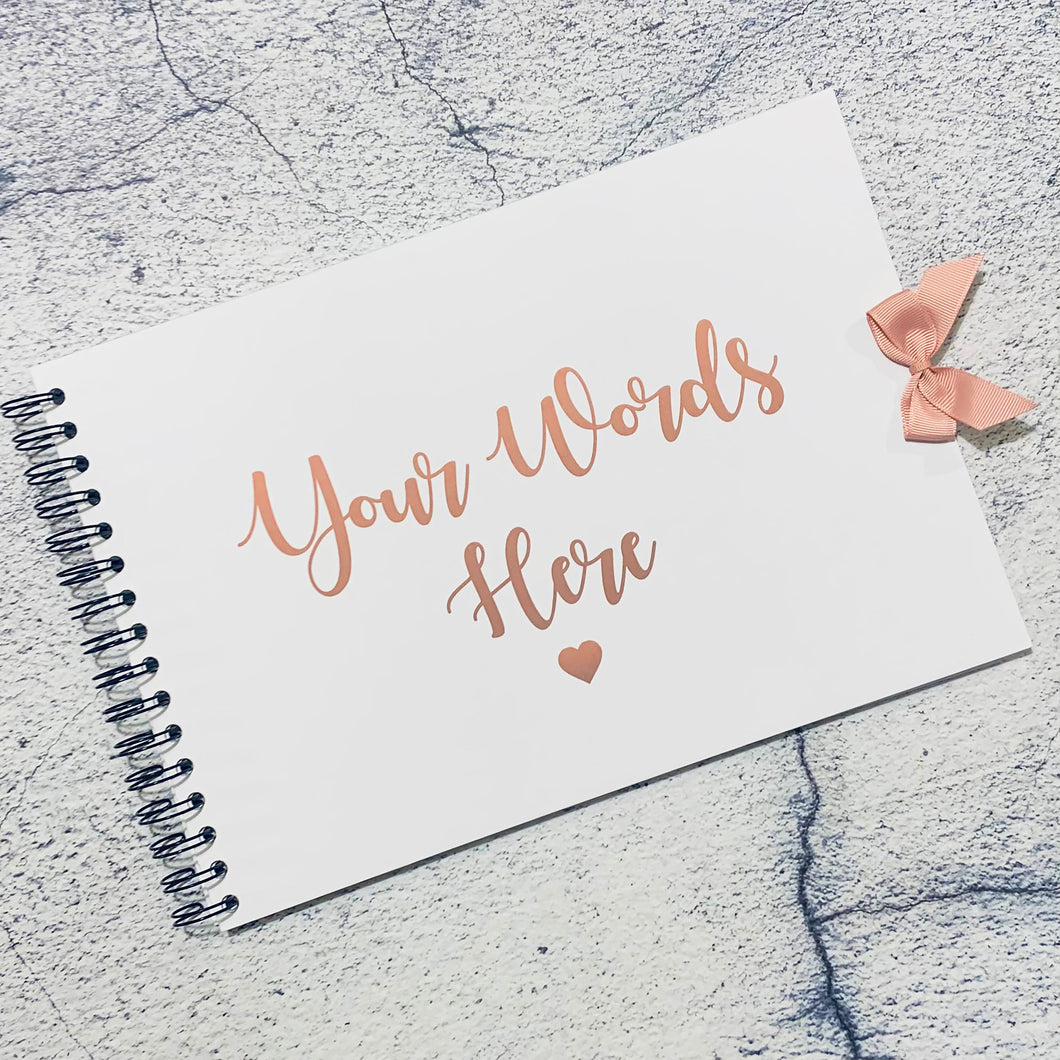 Your Words
Here